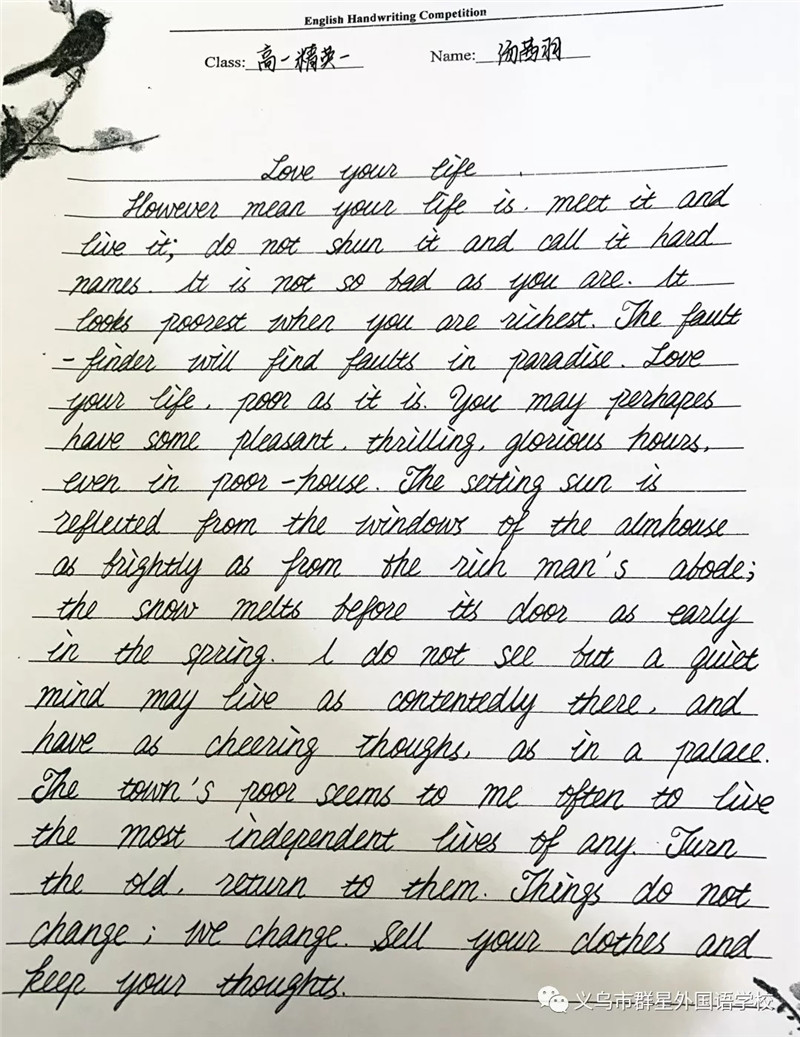 English Handwriting Competition
Class: 高一精英一 Name: 汤茜羽
Love your life
However mean your life is. meet it and
live it; do not shun it and call it hard
names. It is not so bad as you are. It
looks poorest when you are richest. The fault
-finder will find faults in paradise. Love
your life, poor as it is. You may perhapes
have some pleasant, thrilling, glorious hours,
even in poor-house. The setting sun is
reflected from the windows of the almhouse
as brightly as from the rich man's abode;
the snow melts before its door as early
in the spring. I do not see but a quiet
mind may live as contentedly there, and
have as cheering thoughs, as in a palace.
The town's poor seems to me often to live
the most independent lives of any. Turn
the old, return to them. Things do not
change; we change. Sell your clothes and
keep your thoughts.
义乌市群星外国语学校